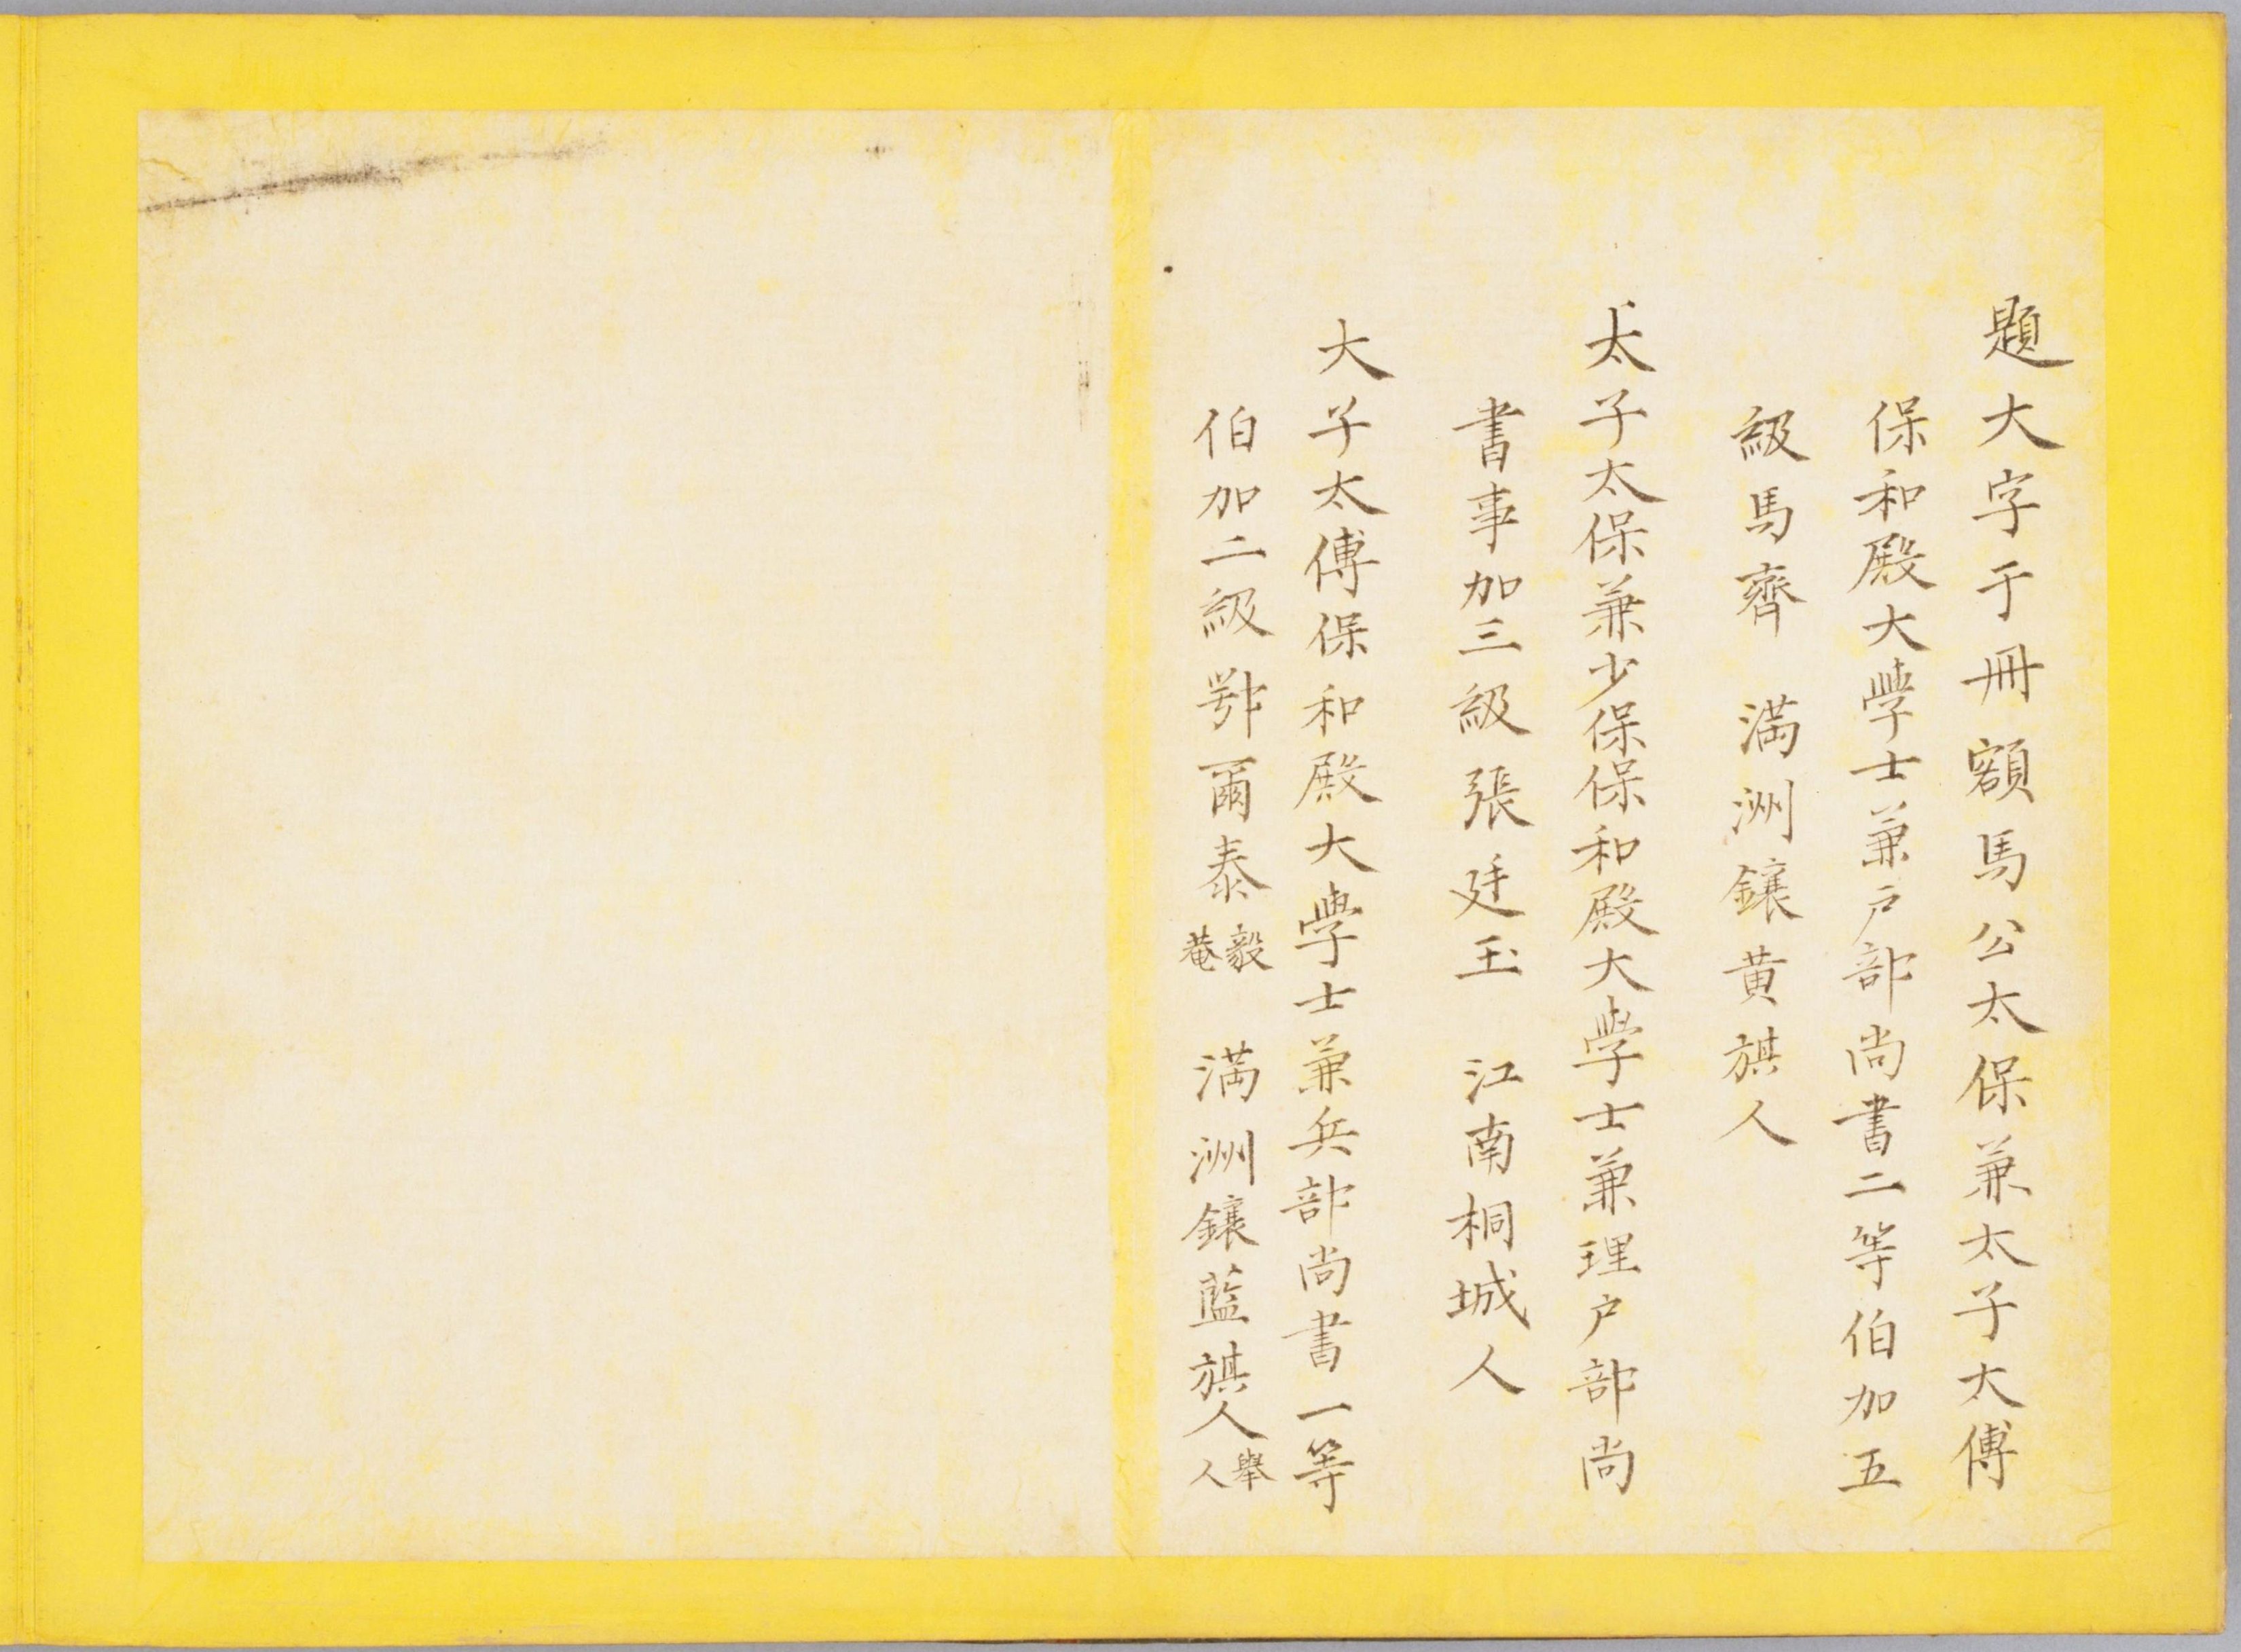 題大字于冊額馬公太保兼太子太傅
保和殿大學士兼户部尚書二等伯加五
級馬齊 滿洲鑲黄旗人
太子太保兼少保保和殿大學士兼理户部尚
書事加三級張廷玉 江南桐城人
大子太傅保和殿大學士兼兵部尚書一等
伯加二級鄂爾泰毅菴 滿洲鑲藍旗人舉人